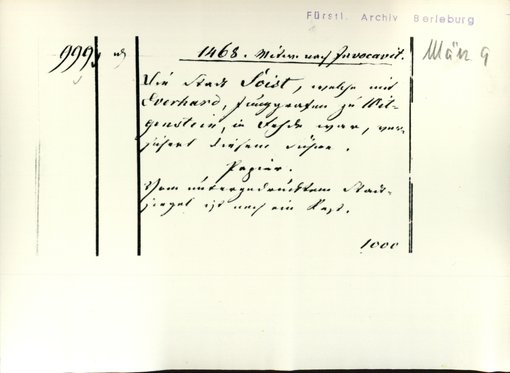 Fürstl. Archiv Berleburg
999. 1468. Mittw. nach Invocavit. März 9
Die Stadt Soist, welche mit
Everhard, Junggrafen zu Wit-
genstein, in Fehde war, ver-
sichert diesem Sühne.
Papier.
Vom untergedrückten Stadt-
siegel ist noch ein Rest.
1000